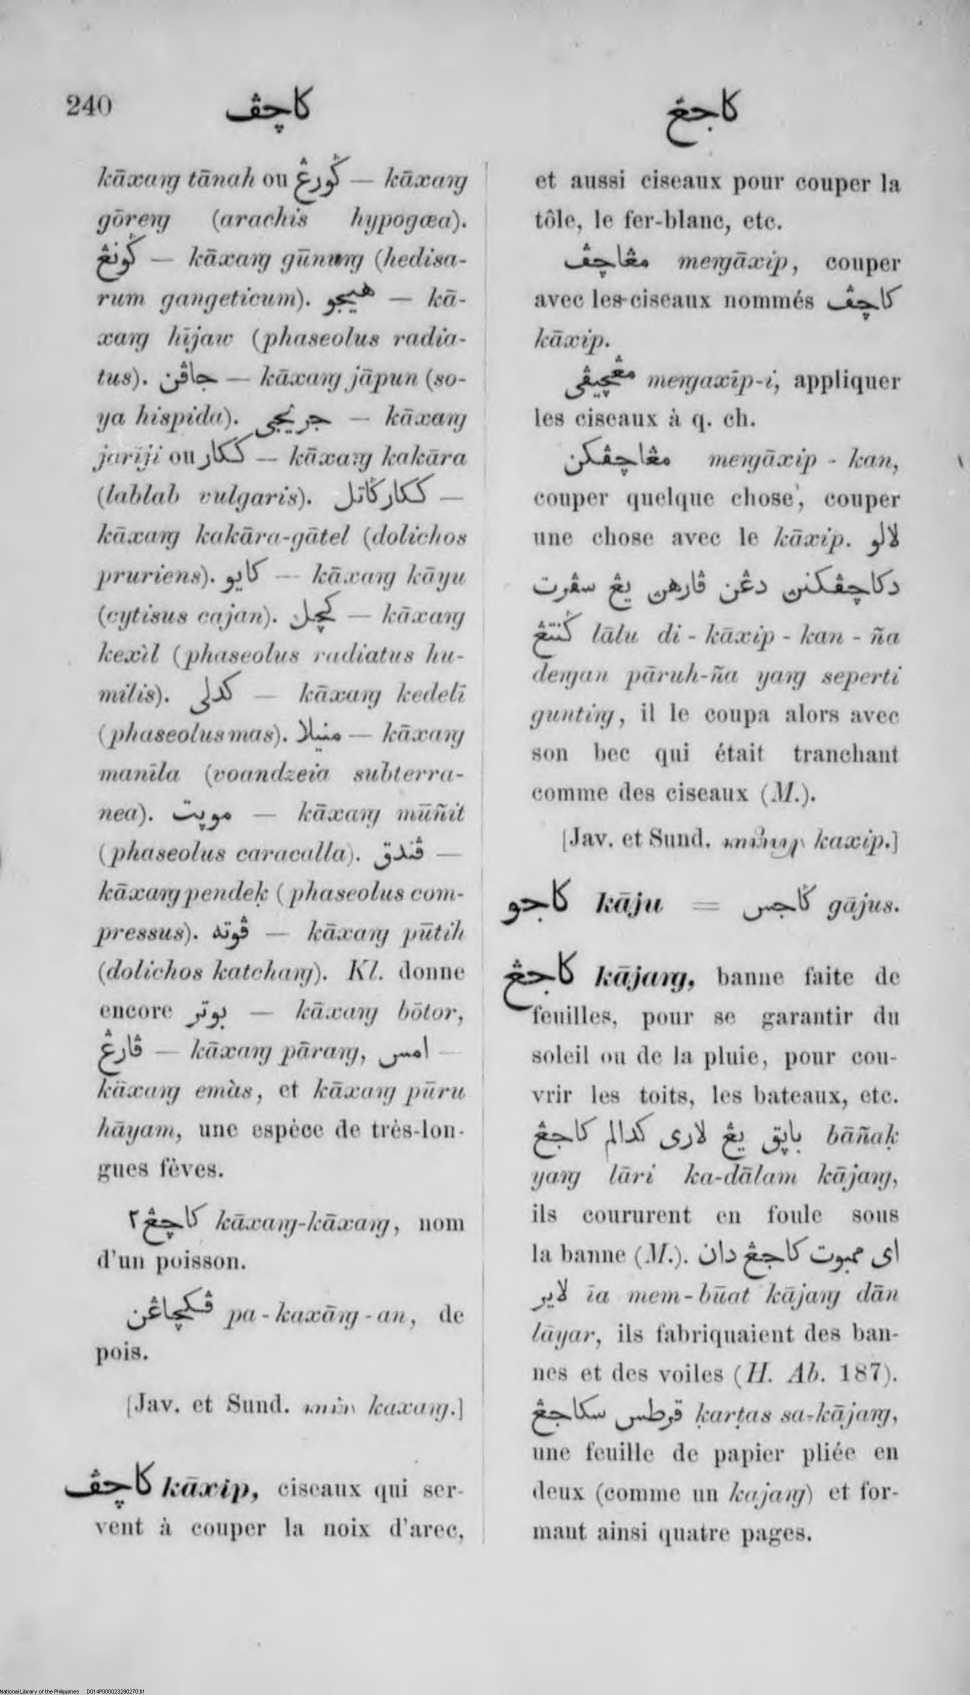 240
كاچڤ
كاجڠ
kāxaŋ tānah ou ڬورڠ — kāxaŋ
gōreŋ (arachis hypogœa).
ڬونڠ — kāxaŋ gūnuŋ (hedisa-
rum gangeticum). هيجو — kā-
xaŋ hījaw (phaseolus radia-
tus). جاڤن — kāxaŋ jāpun (so-
ya hispida). جريجي — kāxaŋ
jarīji ou ككار — kāxaŋ kakāra
(lablab vulgaris). ككارڬاتل —
kāxaŋ kakāra-gātel (dolichos
pruriens). كايو — kāxaŋ kāyu
(cytisus cajan). كچل — kāxaŋ
kexìl (phaseolus radiatus hu-
milis). كدلي — kāxaŋ kedelī
(phaseolus mas). منيلا — kāxaŋ
manīla (voandzeia subterra-
nea). — kāxaŋ mūñit
(phaseolus caracalla). ڤندق —
kāxaŋ pendeḳ (phaseolus com-
pressus). ڤوته — kāxaŋ pūtih
(dolichos katchaŋ). Kl. donne
encore بوتر — kāxaŋ bōtor,
ڤارڠ — kāxaŋ pāraŋ, امس —
kāxaŋ emàs, et kāxaŋ pūru
hāyam, une espèce de très-lon-
gues fèves.
كاچڠ٢ kāxaŋ-kāxaŋ, nom
d'un poisson.
ڤكچاڠن pa-kaxāŋ-an, de
pois.
[Jav. et Sund. kaxaŋ.]
كاچڤ kāxip, ciseaux qui ser-
vent à couper la noix d'arec,
et aussi ciseaux pour couper la
tôle, le fer-blanc, etc.
مڠاچڤ meŋāxip, couper
avec les ciseaux nommés كاچڤ
kāxip.
مڠچيڤي meŋaxīp-i, appliquer
les ciseaux à q. ch.
مڠاچڤكن meŋāxip-kan,
couper quelque chose, couper
une chose avec le kāxip. لالو
دكاچڤكنن دڠن ڤارهن يڠ سڤرت
ڬنتڠ lālu di-kāxip-kan-ña
deŋan pāruh-ña yaŋ seperti
guntiŋ, il le coupa alors avec
son bec qui était tranchant
comme des ciseaux (M.).
[Jav. et Sund. kaxip.]
كاجو kāju = ڬاجس gājus.
كاجڠ kājaŋ, banne faite de
feuilles, pour se garantir du
soleil ou de la pluie, pour cou-
vrir les toits, les bateaux, etc.
باڽق يڠ لاري كدالم كاجڠ bāñaḳ
yaŋ lāri ka-dālam kājaŋ,
ils coururent en foule sous
la banne (M.). اي ممبوت كاجڠ دان
لاير īa mem-būat kājaŋ dān
lāyar, ils fabriquaient des ban-
nes et des voiles (H. Ab. 187).
قرطس سكاجڠ ḳarṭas sa-kājaŋ,
une feuille de papier pliée en
deux (comme un kajaŋ) et for-
mant ainsi quatre pages.
National Library of the Philippines